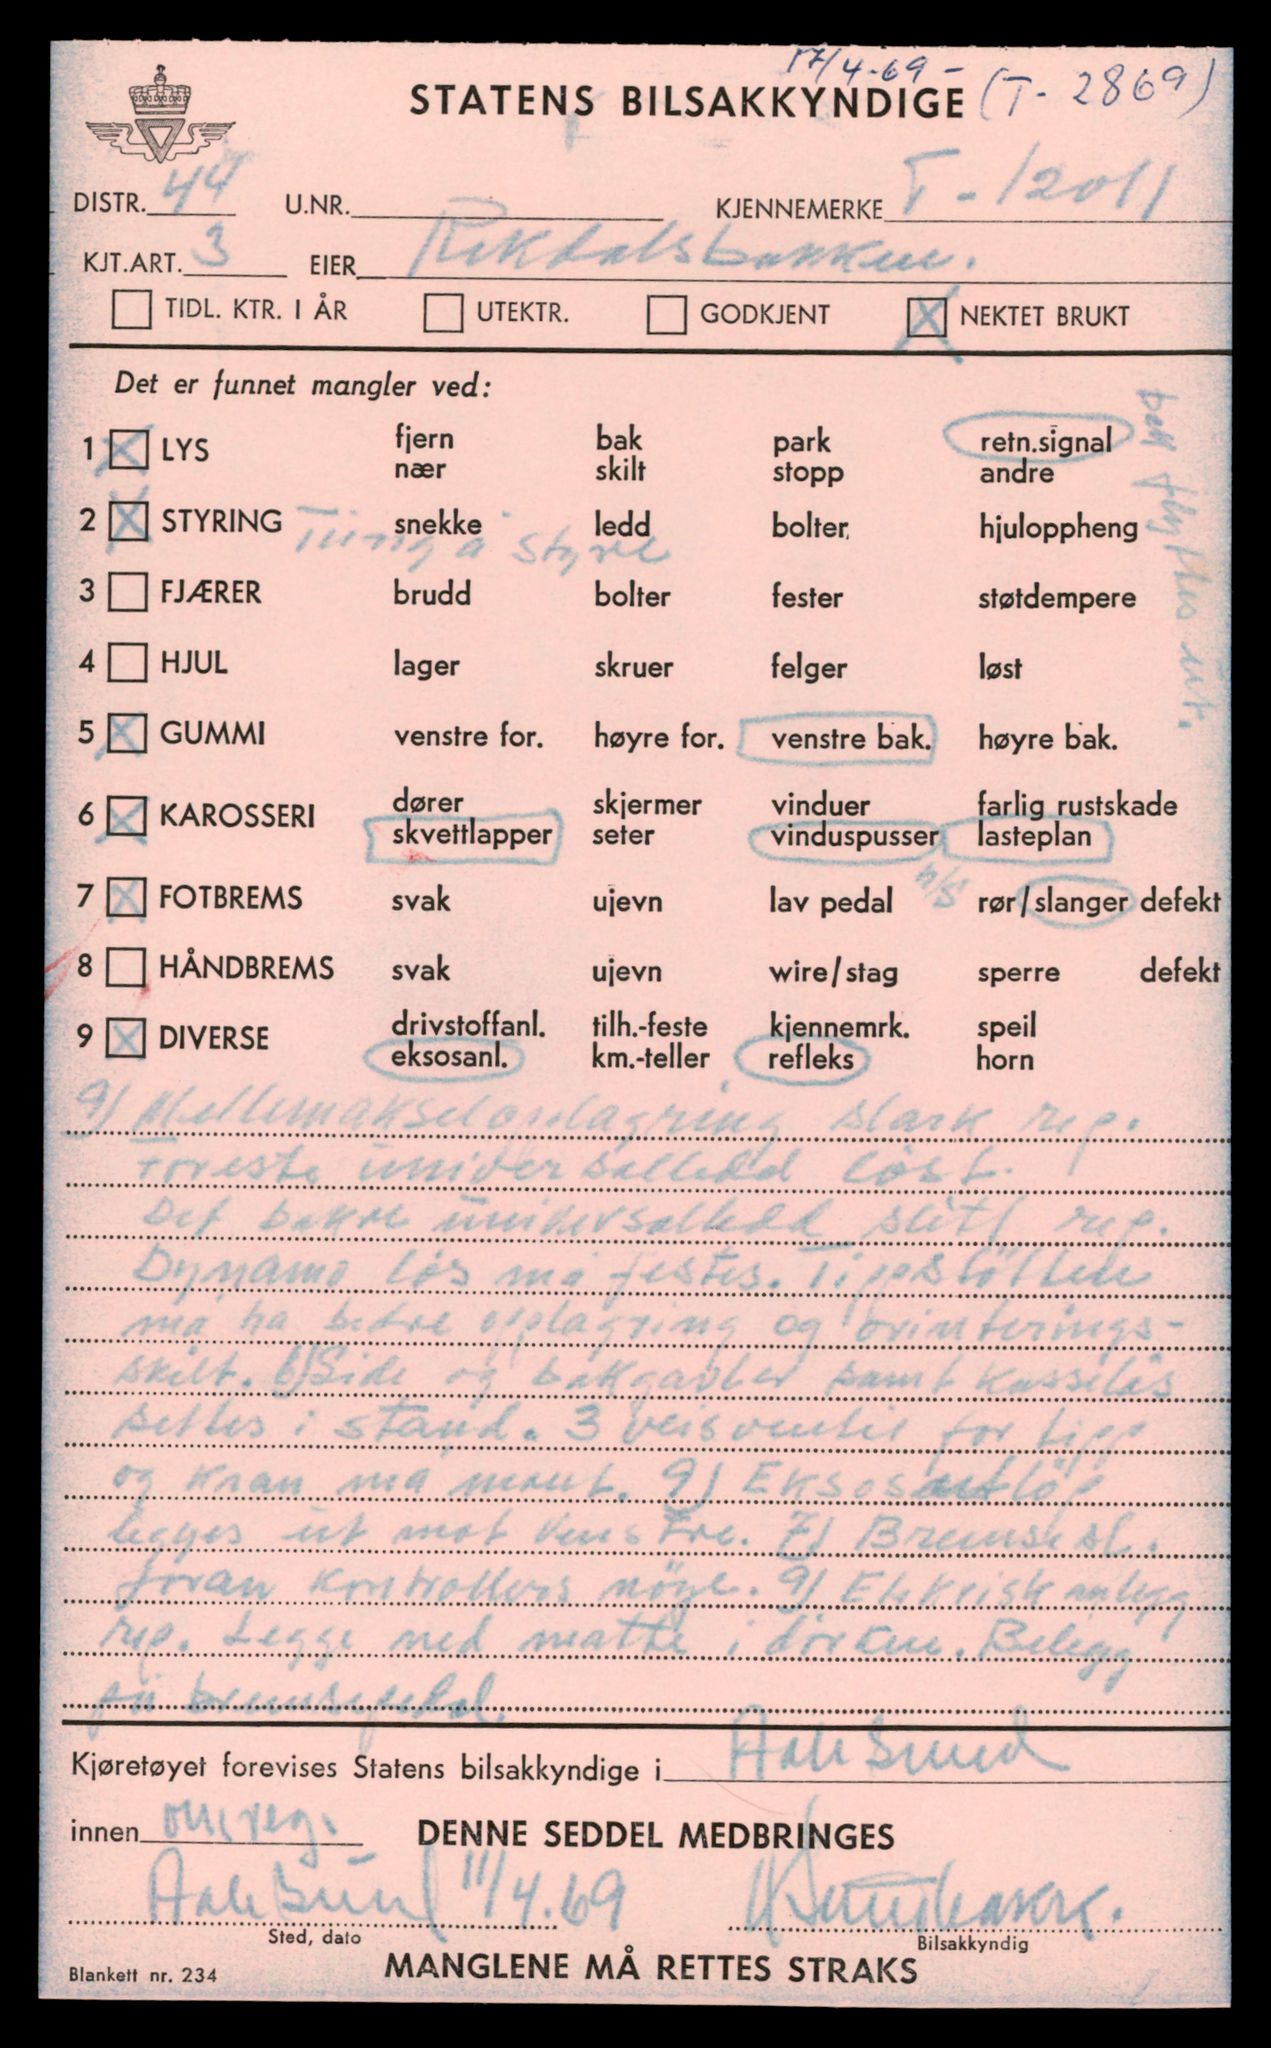 17/4-69 -
STATENS BILSAKKYNDIGE (T- 2869)
DISTR. 44 U.NR. KJENNEMERKE T-12011
KJT.ART. 3 EIER Rekdalsbakken.
TIDL. KTR. I ÅR UTEKTR. GODKJENT X NEKTET BRUKT
Det er funnet mangler ved:
1 X LYS fjern bak park retn.signal
nær skilt stopp andre
bak flyttes ut.
2 X STYRING snekke ledd bolter, hjuloppheng
Tung å styre
3 FJÆRER brudd bolter fester støtdempere
4 HJUL lager skruer felger løst
5 X GUMMI venstre for. høyre for. venstre bak. høyre bak.
6 X KAROSSERI dører skjermer vinduer farlig rustskade
skvettlapper seter vinduspusser lasteplan
7 X FOTBREMS svak ujevn lav pedal rør/slanger defekt
8 HÅNDBREMS svak ujevn wire/stag sperre defekt
9 X DIVERSE drivstoffanl. tilh.-feste kjennemrk. speil
eksosanl. km.-teller refleks horn
9) Mellemakselopplagring slark rep.
Foreste universalledd løst.
Det bakre universalledd slitt rep.
Dynamo løs må festes. Tippstötten
må ha bedre opplagring og
skilt. 6) Side og bakgavler samt kasselås
settes i stand. 3 veisventil for tipp
og kran må mont. 9) Eksosutløp
legges ut mot venstre. 7) Bremsesl.
foran kontrolleres nöye. 9) Elektrisk anlegg
rep. Legge ned matte i dörken. Belegg
på bremsepedal.
Kjøretøyet forevises Statens bilsakkyndige i Aalesund
innen omreg. DENNE SEDDEL MEDBRINGES
Aalesund 11/4.69
Sted, dato Bilsakkyndig
Blankett nr. 234 MANGLENE MÅ RETTES STRAKS